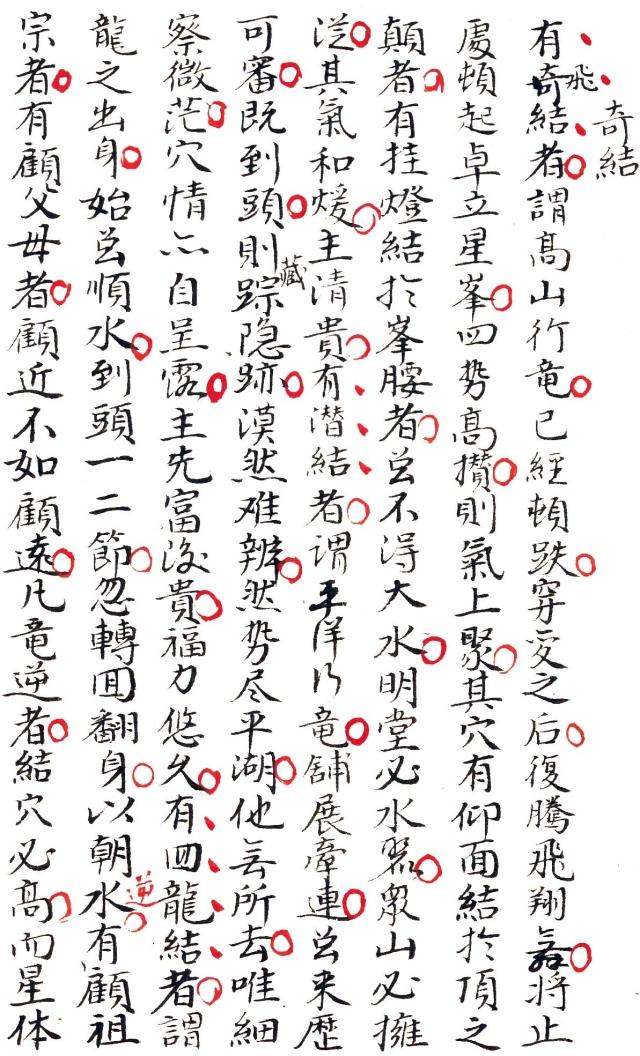 奇結
有飛結者謂高山行竜已經頓跌穿受之后復騰飛翔舞將止
處頓起卓立星峯四势高攅則氣上聚其穴有仰面結扵頂之
顛者有挂燈結扵峯腰者㧾不淂大水明堂必水聚衆山必擁
従其氣和煖主清貴有潛結者谓平洋行竜舖展牽連㧾来歴
可審既到頭則藏踪隐跡漠然难辨然势尽平湖他無所去唯細
察微茫穴情亦自呈露主先富後貴福力悠久有回龍結者謂
龍之出身始㧾順水到頭一二節忽轉回翻身以朝水逆有顧祖
宗者有顧父母者顧近不如顧遠凡竜逆者結穴必高而星体